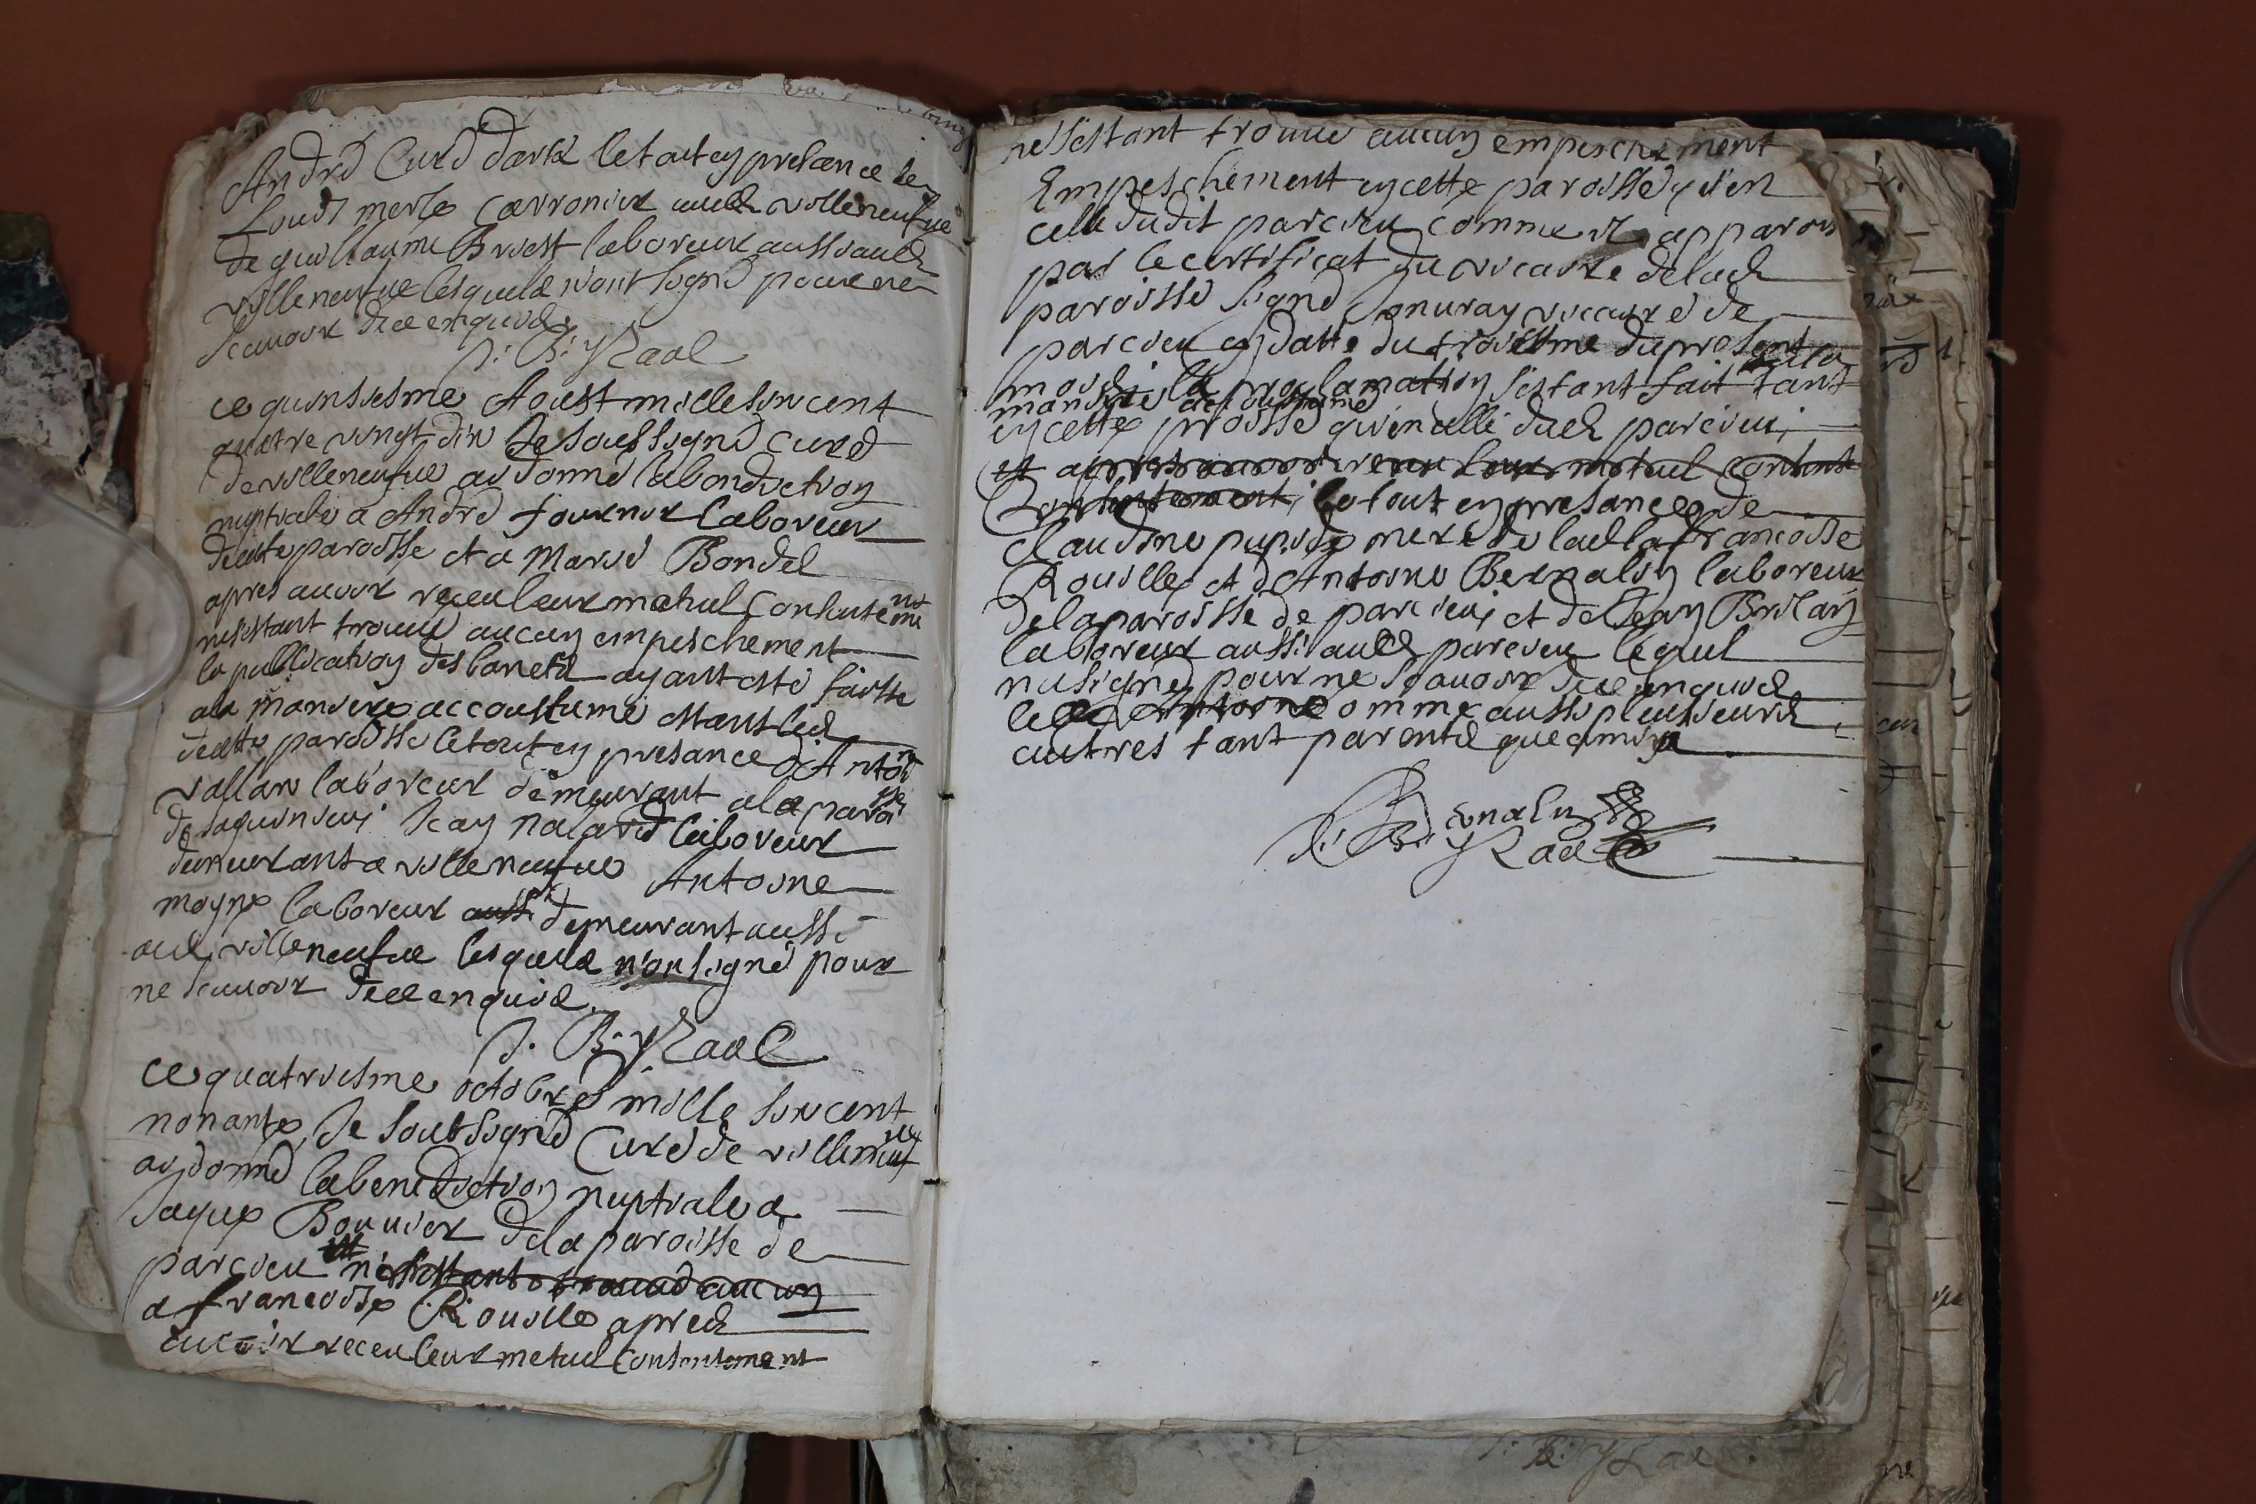 André Curé dars le tout en presance de
Louis merle carronier aud villeneufue
de guillaume Briest laboreur aussi aud
villeneufue lesquels n'ont signé pour ne
scauoir de ce enquis
J: B: Yzaac
ce quinsiesme Aoust mille six cent
quatre vingt dix Je soussigné Curé
de villeneufue ay donné la bondiction
nuptiale a André fournir laboreur
de cete paroisse et a Marie Bondel
apres auoir receu leur mutuel Contente nt
ne sestant trouué aucun empeschement
la publication des bancts ayant esté faitte
a la maniere accoustumé estants les
de cette paroisse le tout en presance d'Antoi ne
vallan laboreur demeurant a la paroi sse
de Jean Nalard laboreur
demeurant a villeneufue Antoine
moyne laboreur aussi demeurant aussi
aud villeneufue lesquels n'on signé pour
ne scauoir de ce enquis
J. B. Yzaac
ce quatriesme octobre mille six cent
nonante Je soubsigné Curé de villeneuf ue
ay donné la benediction nuptiale a
Jaque Bouuier de la paroisse de
parcieu et ne sestant trouué aucun
a francoise Riouille apres
auoir receu leur mutuel Consentement
ne s'estant trouué aucun empeschement
Empeschement en cette paroisse qu'en
celle dudit parcieu comme il apparois
par le certificat du vicaire de lad
paroisse signé Jonuray viccaire de
parcieu en datte du troisiesme du present
mois la proclamation s'estant fait tant a la
maniere accoustumé
en cette proisse qu'en celle dud parcieu
et apres auoir receu leur mutuel content
Consentement le tout en presance de
Claudine pupide mere de lad la francoise
Riouille et d'Antoine Bernalin laboreur
de la paroisse de parcieu et de Jean Brilan
laboreur aussi aud parcieu lequel
na signé pour ne scauoir de ce enquis
led Antoine omme aussi pleusieurs
autres tant parents que amis
Bernalin
J: B: Yzaac
J: B: Yzaac